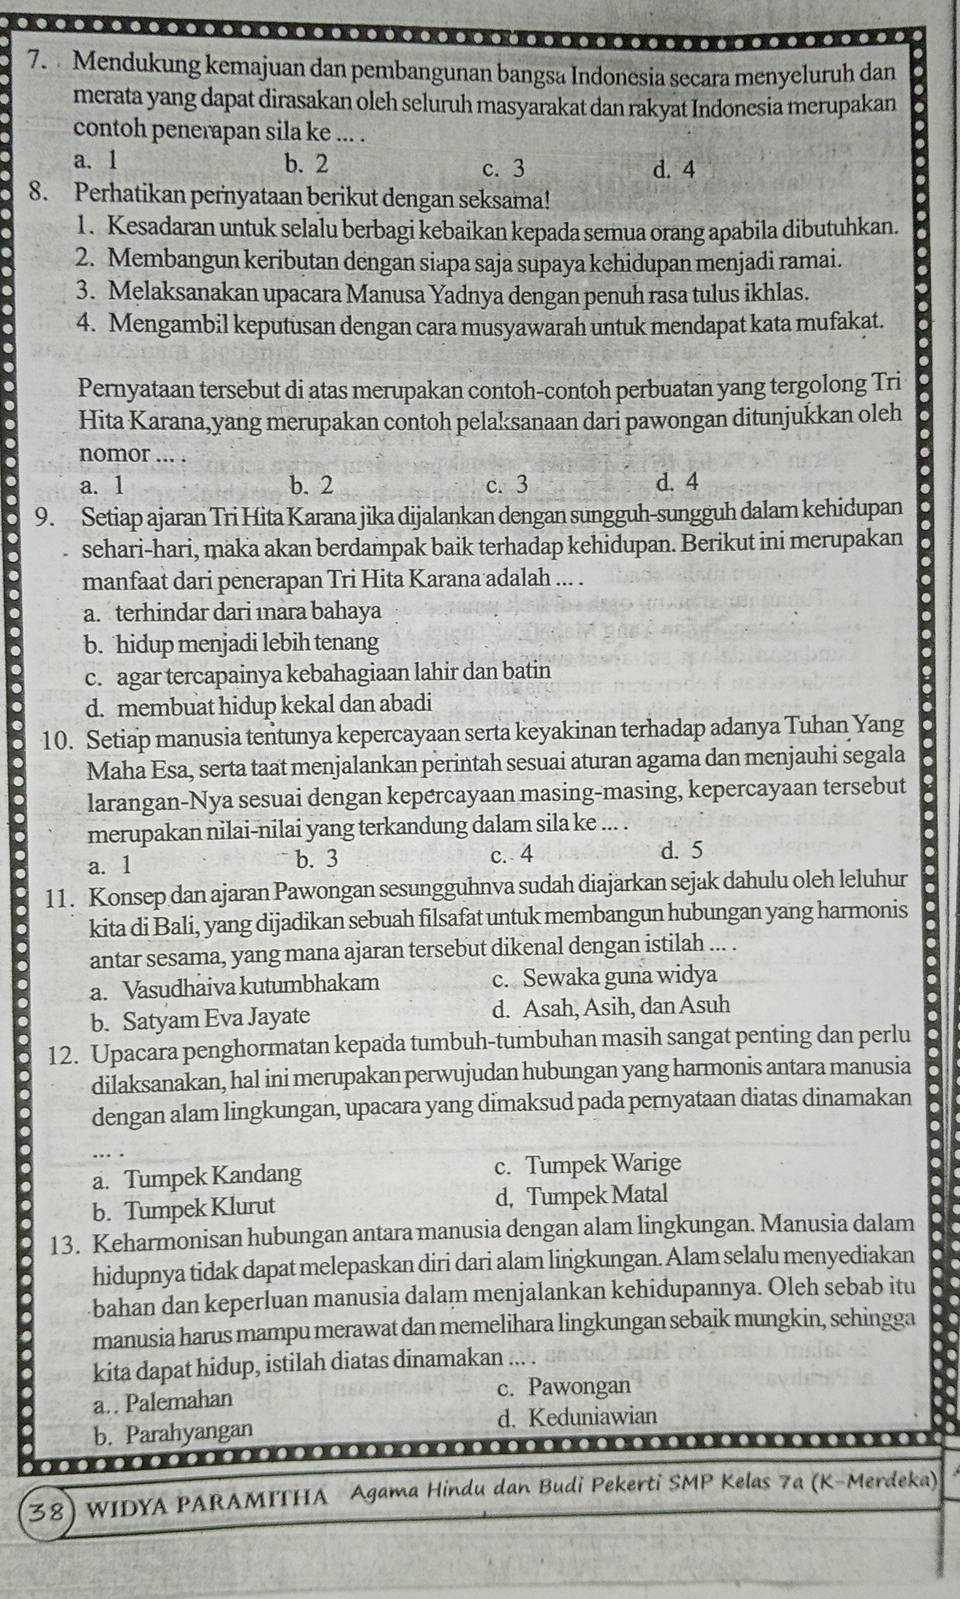 7. Mendukung kemajuan dan pembangunan bangsa Indonesia secara menyeluruh dan
merata yang dapat dirasakan oleh seluruh masyarakat dan rakyat Indonesia merupakan
contoh penerapan sila ke ... .
a. 1 b. 2 c. 3 d. 4
8. Perhatikan pernyataan berikut dengan seksama!
1. Kesadaran untuk selalu berbagi kebaikan kepada semua orang apabila dibutuhkan.
2. Membangun keributan dengan siapa saja supaya kehidupan menjadi ramai.
3. Melaksanakan upacara Manusa Yadnya dengan penuh rasa tulus ikhlas.
4. Mengambil keputusan dengan cara musyawarah untuk mendapat kata mufakat.
Pernyataan tersebut di atas merupakan contoh-contoh perbuatan yang tergolong Tri
Hita Karana,yang merupakan contoh pelaksanaan dari pawongan ditunjukkan oleh
nomor ... .
a. 1 b. 2 c. 3 d. 4
9. Setiap ajaran Tri Hita Karana jika dijalankan dengan sungguh-sungguh dalam kehidupan
sehari-hari, maka akan berdampak baik terhadap kehidupan. Berikut ini merupakan
manfaat dari penerapan Tri Hita Karana adalah ... .
a. terhindar dari mara bahaya
b. hidup menjadi lebih tenang
c. agar tercapainya kebahagiaan lahir dan batin
d. membuat hidup kekal dan abadi
10. Setiap manusia tentunya kepercayaan serta keyakinan terhadap adanya Tuhan Yang
Maha Esa, serta taat menjalankan perintah sesuai aturan agama dan menjauhi segala
larangan-Nya sesuai dengan kepercayaan masing-masing, kepercayaan tersebut
merupakan nilai-nilai yang terkandung dalam sila ke ... .
a. 1 b. 3 c. 4 d. 5
11. Konsep dan ajaran Pawongan sesungguhnva sudah diajarkan sejak dahulu oleh leluhur
kita di Bali, yang dijadikan sebuah filsafat untuk membangun hubungan yang harmonis
antar sesama, yang mana ajaran tersebut dikenal dengan istilah ... .
a. Vasudhaiva kutumbhakam c. Sewaka guna widya
b. Satyam Eva Jayate d. Asah, Asih, dan Asuh
12. Upacara penghormatan kepada tumbuh-tumbuhan masih sangat penting dan perlu
dilaksanakan, hal ini merupakan perwujudan hubungan yang harmonis antara manusia
dengan alam lingkungan, upacara yang dimaksud pada pernyataan diatas dinamakan
... .
a. Tumpek Kandang c. Tumpek Warige
b. Tumpek Klurut d, Tumpek Matal
13. Keharmonisan hubungan antara manusia dengan alam lingkungan. Manusia dalam
hidupnya tidak dapat melepaskan diri dari alam lingkungan. Alam selalu menyediakan
bahan dan keperluan manusia dalam menjalankan kehidupannya. Oleh sebab itu
manusia harus mampu merawat dan memelihara lingkungan sebaik mungkin, sehingga
kita dapat hidup, istilah diatas dinamakan ... .
a. Palemahan c. Pawongan
b. Parahyangan d. Keduniawian
38 WIDYA PARAMITHA Agama Hindu dan Budi Pekerti SMP Kelas 7a (K-Merdeka)